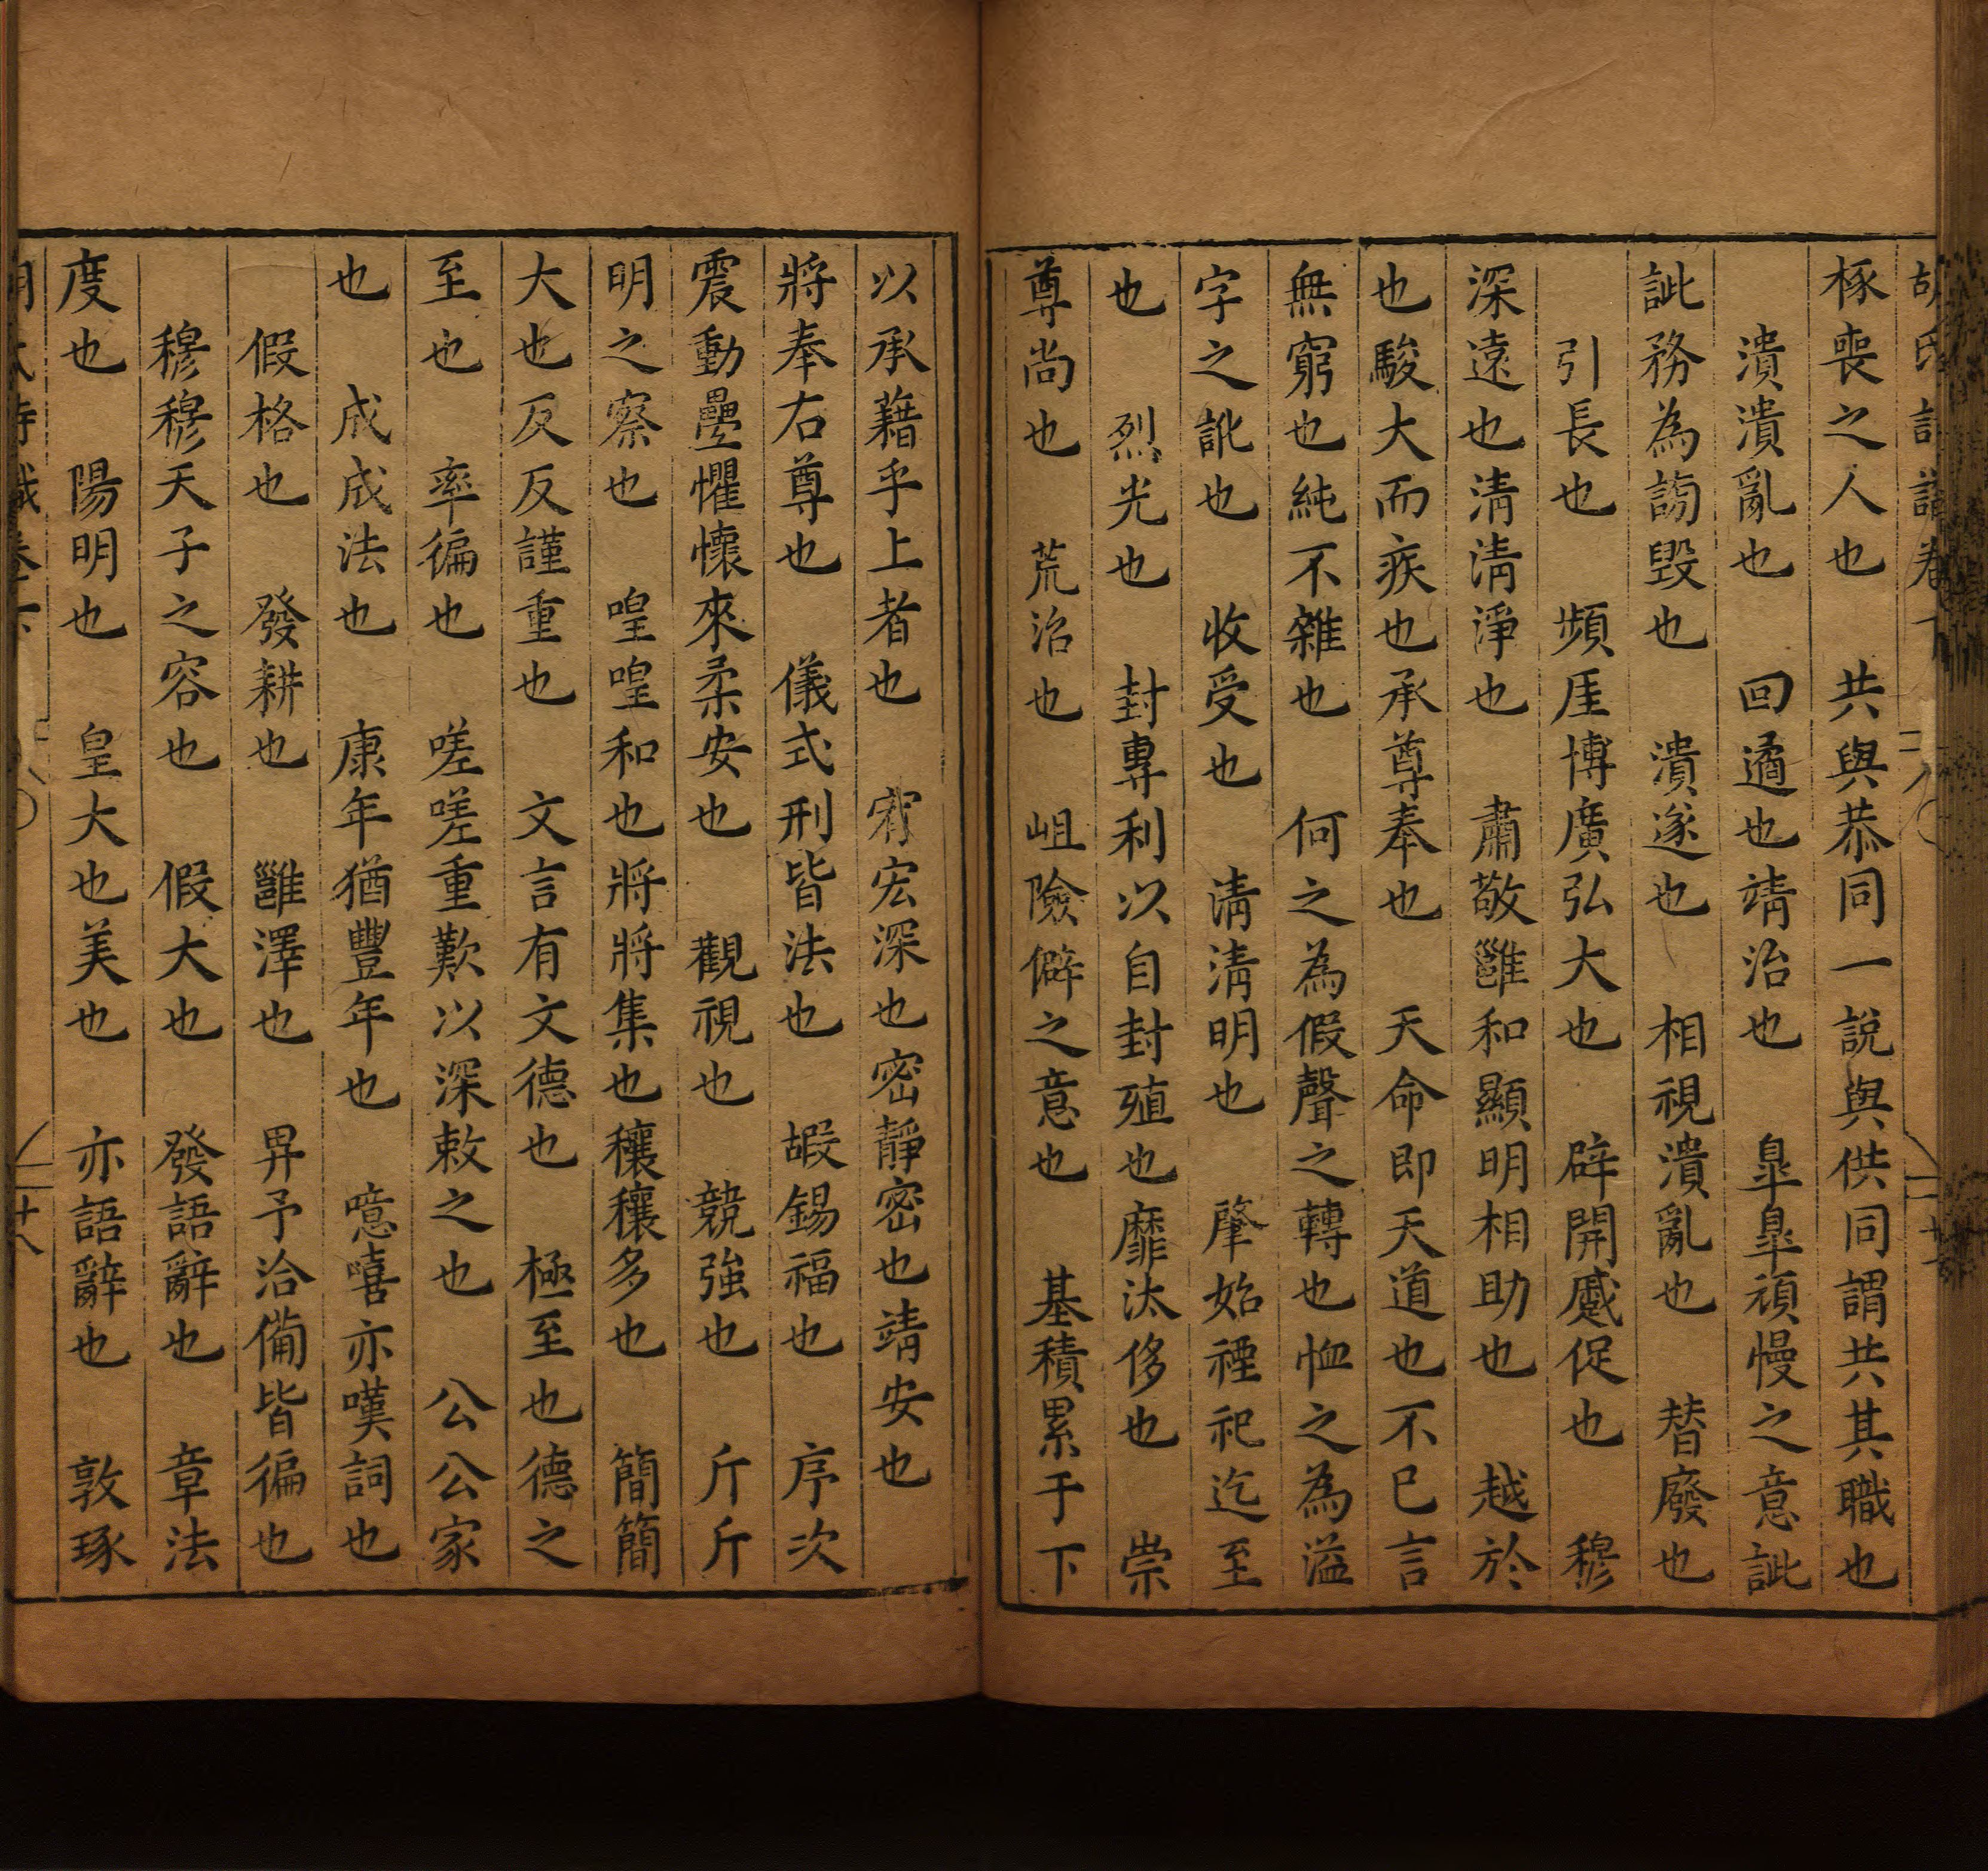 椓喪之人也　共與恭同一說與供同謂共其職也
潰潰亂也　回遹也靖治也　臯臯頑慢之意訿
訿務為謗毀也　潰遂也　相視潰亂也　替廢也
引長也　頻厓博廣弘大也　辟開蹙促也　穆
深遠也清清淨也　肅敬雝和顯明相助也　越於
也駿大而疾也承尊奉也　天命即天道也不已言
無窮也純不雜也　何之為假聲之轉也恤之為溢
字之訛也　收受也　清清明也　肇始禋祀迄至
也　烈光也　封專利以自封殖也靡汰侈也　崇
尊尚也　荒治也　岨險僻之意也　基積累于下
以承藉乎上者也　宥宏深也密靜密也靖安也
將奉右尊也　儀式刑皆法也　嘏錫福也　序次
震動疊懼懷來柔安也　觀視也　競強也　斤斤
明之察也　喤喤和也將將集也穰穰多也　簡簡
大也反反謹重也　文言有文德也　極至也德之
至也　率徧也　嗟嗟重歎以深敕之也　公公家
也　成成法也　康年猶豐年也　噫嘻亦嘆詞也
假格也　發耕也　雝澤也　畀予洽備皆徧也
穆穆天子之容也　假大也　發語辭也　章法
度也　陽明也　皇大也美也　亦語辭也　敦琢